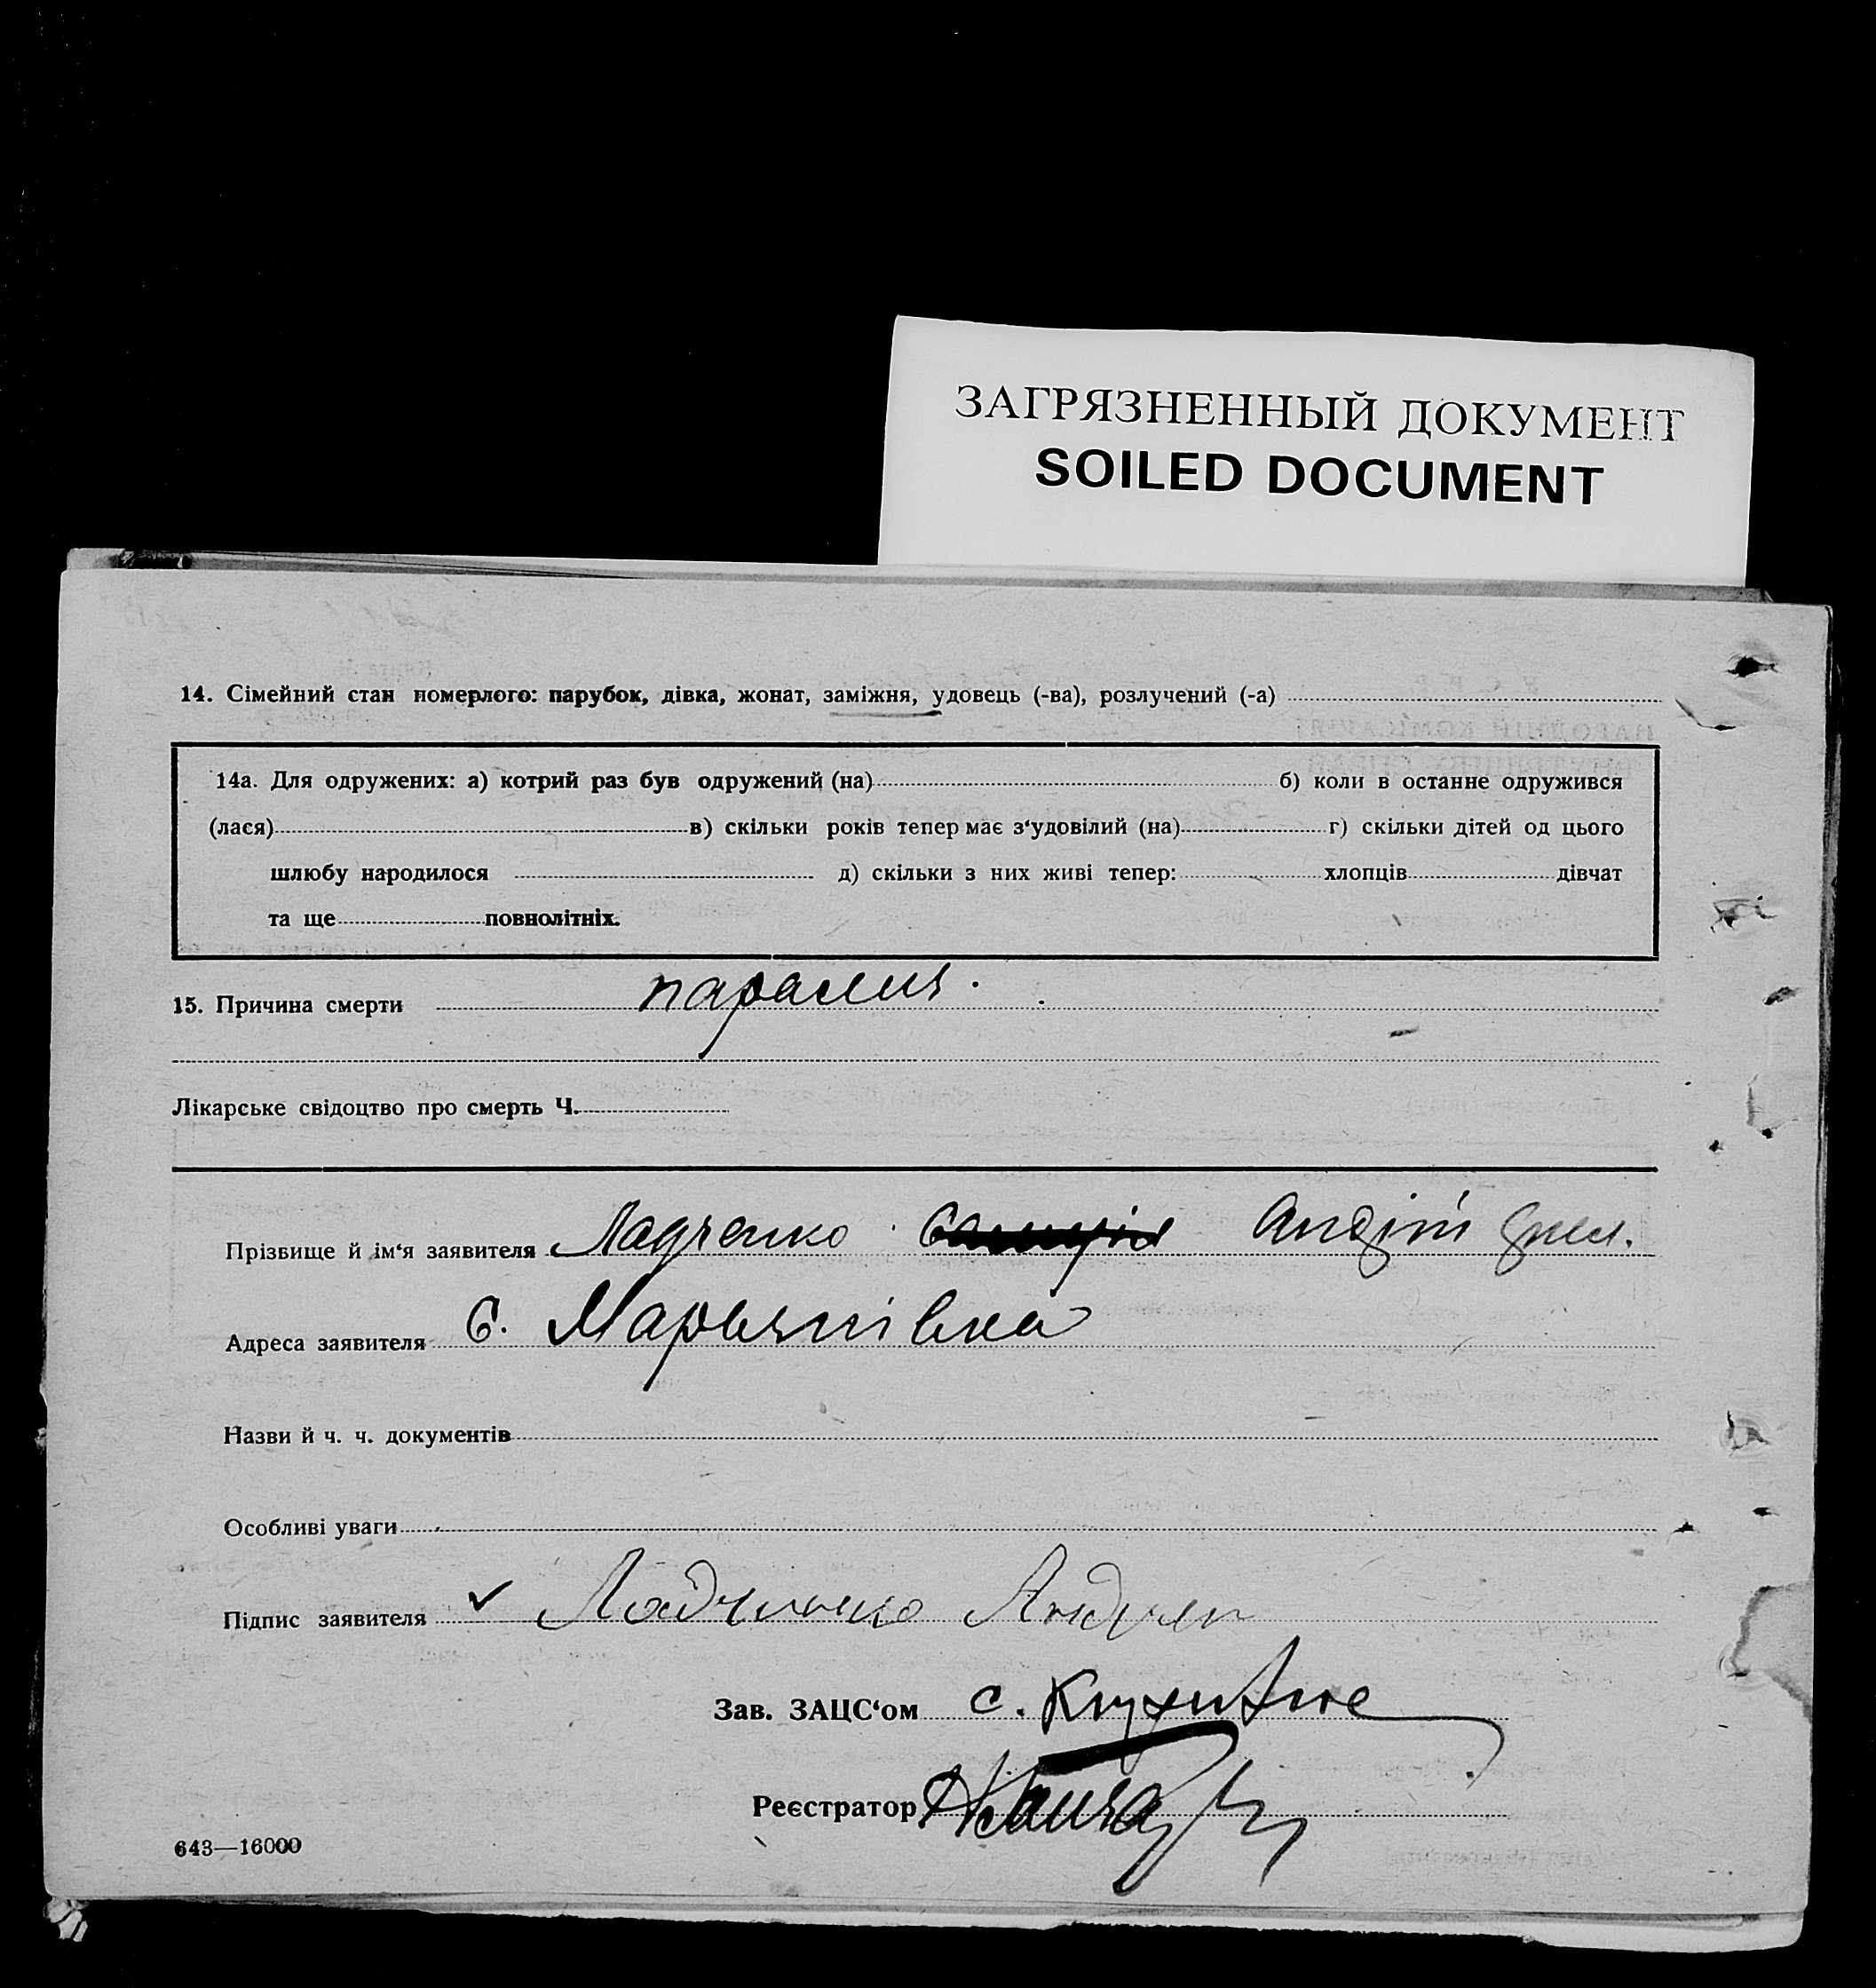 ЗАГРЯЗНЕННЫЙ ДОКУМЕНТ
SOILED DOCUMENT
14. Сімейний стан померлого: парубок, дівка, жонат, заміжня, удовець (-ва), розлучений (-а)
14а. Для одружених: а) котрий раз був одружений (на) б) коли в останне одружився
(лася) в) скільки років тепер має з‘удовілий (на) г) скільки дітей од цього
шлюбу народилося д) скільки з них живі тепер: хлопців дівчат
та ще повнолітніх.
15. Причина смерти параліч.
Лікарське свідоцтво про смерть Ч.
Прізвище й ім‘я заявителя Ладченко Андрій
Адреса заявителя С. Марьянівка
Назви й ч. ч. документів
Особливі уваги
Підпис заявителя Ладченко Андреи
Зав. ЗАЦС‘ом С.
Реєстратор
643—16000